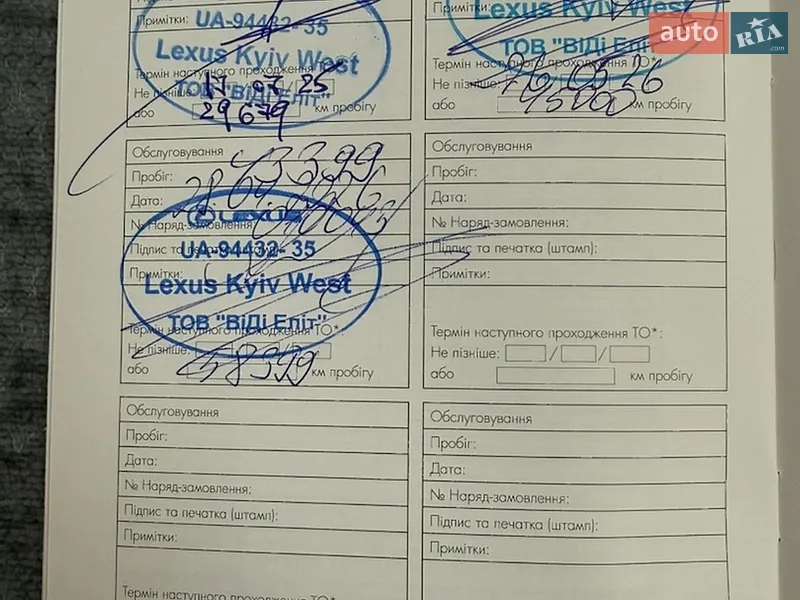 Примітки:
UA-94432-35
Lexus Kyiv West
ТОВ "ВіДі Еліт"
Термін наступного проходження
Не пізніше: 17 / 07 / 25
або 29 679 км пробігу
Lexus Kyiv West
ТОВ "ВіДі Еліт"
Термін наступного проходження ТО*:
Не пізніше:
або 45000 км пробігу
auto RIA .com
Обслуговування
Пробіг: 43399
Дата:
№ Наряд-замовлення:
LEXUS
Підпис та печатка (штамп):
UA-94432-35
Примітки:
Lexus Kyiv West
ТОВ "ВіДі Еліт"
Термін наступного проходження ТО*:
Не пізніше:
або 58399 км пробігу
Обслуговування
Пробіг:
Дата:
№ Наряд-замовлення:
Підпис та печатка (штамп):
Примітки:
Термін наступного проходження ТО*:
Не пізніше: / /
або км пробігу
Обслуговування
Пробіг:
Дата:
№ Наряд-замовлення:
Підпис та печатка (штамп):
Примітки:
Термін наступного проходження ТО*:
Обслуговування
Пробіг:
Дата:
№ Наряд-замовлення:
Підпис та печатка (штамп):
Примітки: